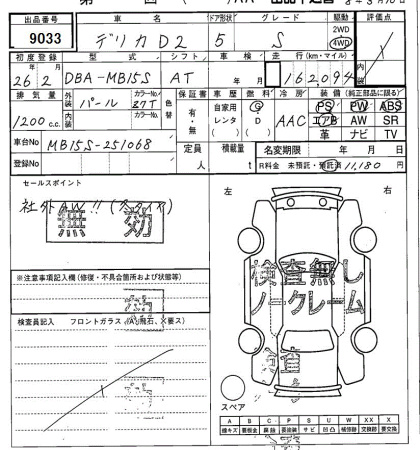 出品番号 車名 ドア形状 グレード 駆動 評価点
9033 デリカD2 5 S 2WD 4WD
初度登録 型式 シフト 車検 走行(km・マイル) 内装
26年2月 DBA-MB15S AT 年 月 162,094
排気量 外装 カラーNo. 色替 保証書 車歴 燃料 冷房 装備(純正部品に限る)
1200c.c. パール 27T 有・無 自家用 レンタ ( ) G D ( ) AAC PS PW ABS
エアB AW SR
革 ナビ TV
車台No MB15S-251068 定員 人 積載量 t 名変期限 年 月 日
登録No R料金 未預託・預託済 11,180円
セールスポイント
社外AW!!
無効
左 右
検査無し
ノークレーム
※注意事項記入欄(修復・不具合箇所および状態等)
検査員記入 フロントガラス(A,飛石、X要ス)
スペア
A B C P S U W X XX
線キズ 看板金 腐蝕 要塗装 サビ 凹凸 補修跡 交換跡 要交換